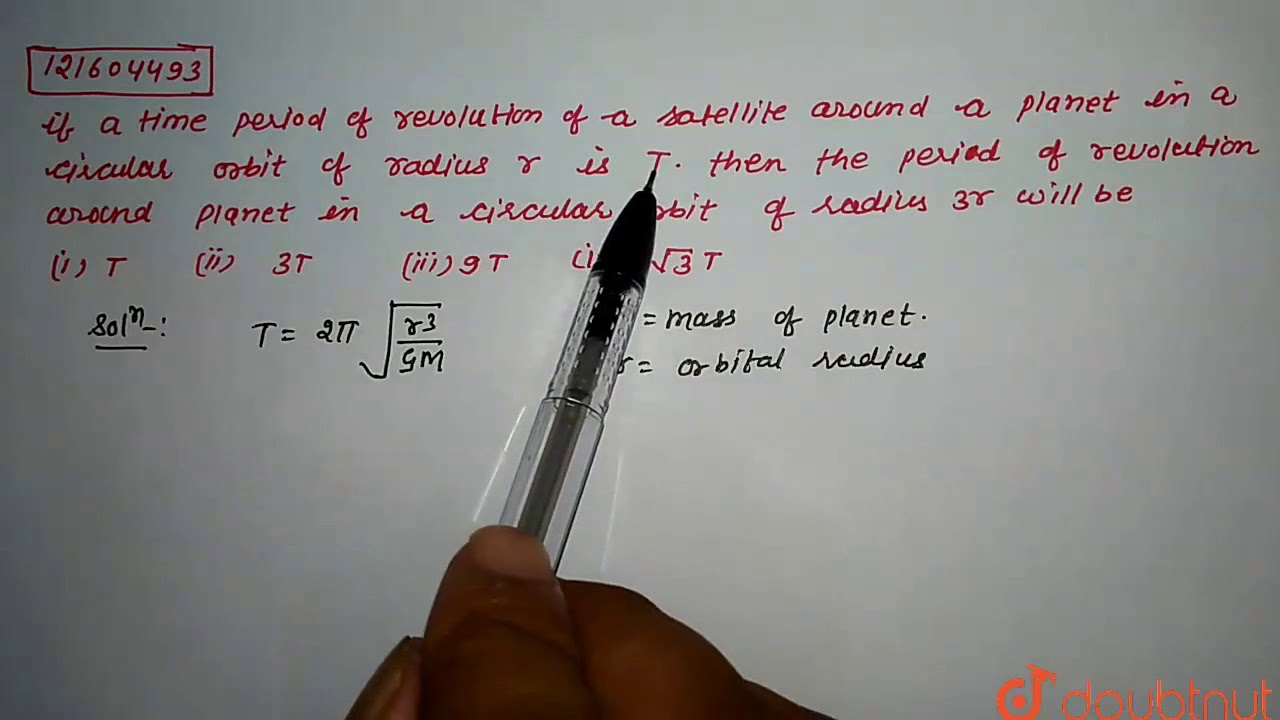 121604493
if a time period of revolution of a satellite around a planet in a
circular orbit of radius r is T. then the period of revolution
around planet in a circular orbit of radius 3r will be
(i) T (ii) 3T (iii) 9T √3 T
Solⁿ-: T = 2π √(r3/GM) = mass of planet.
r = orbital radius
doubtnut